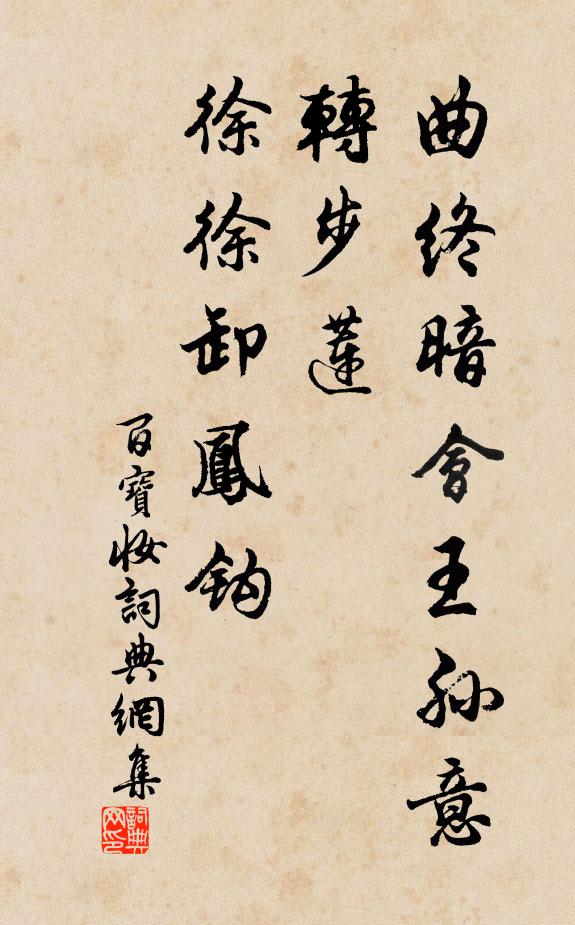 曲终暗會王孙意
轉步蓮
徐徐卸鳳鈎
百寶妝詞典網集
詞典網印